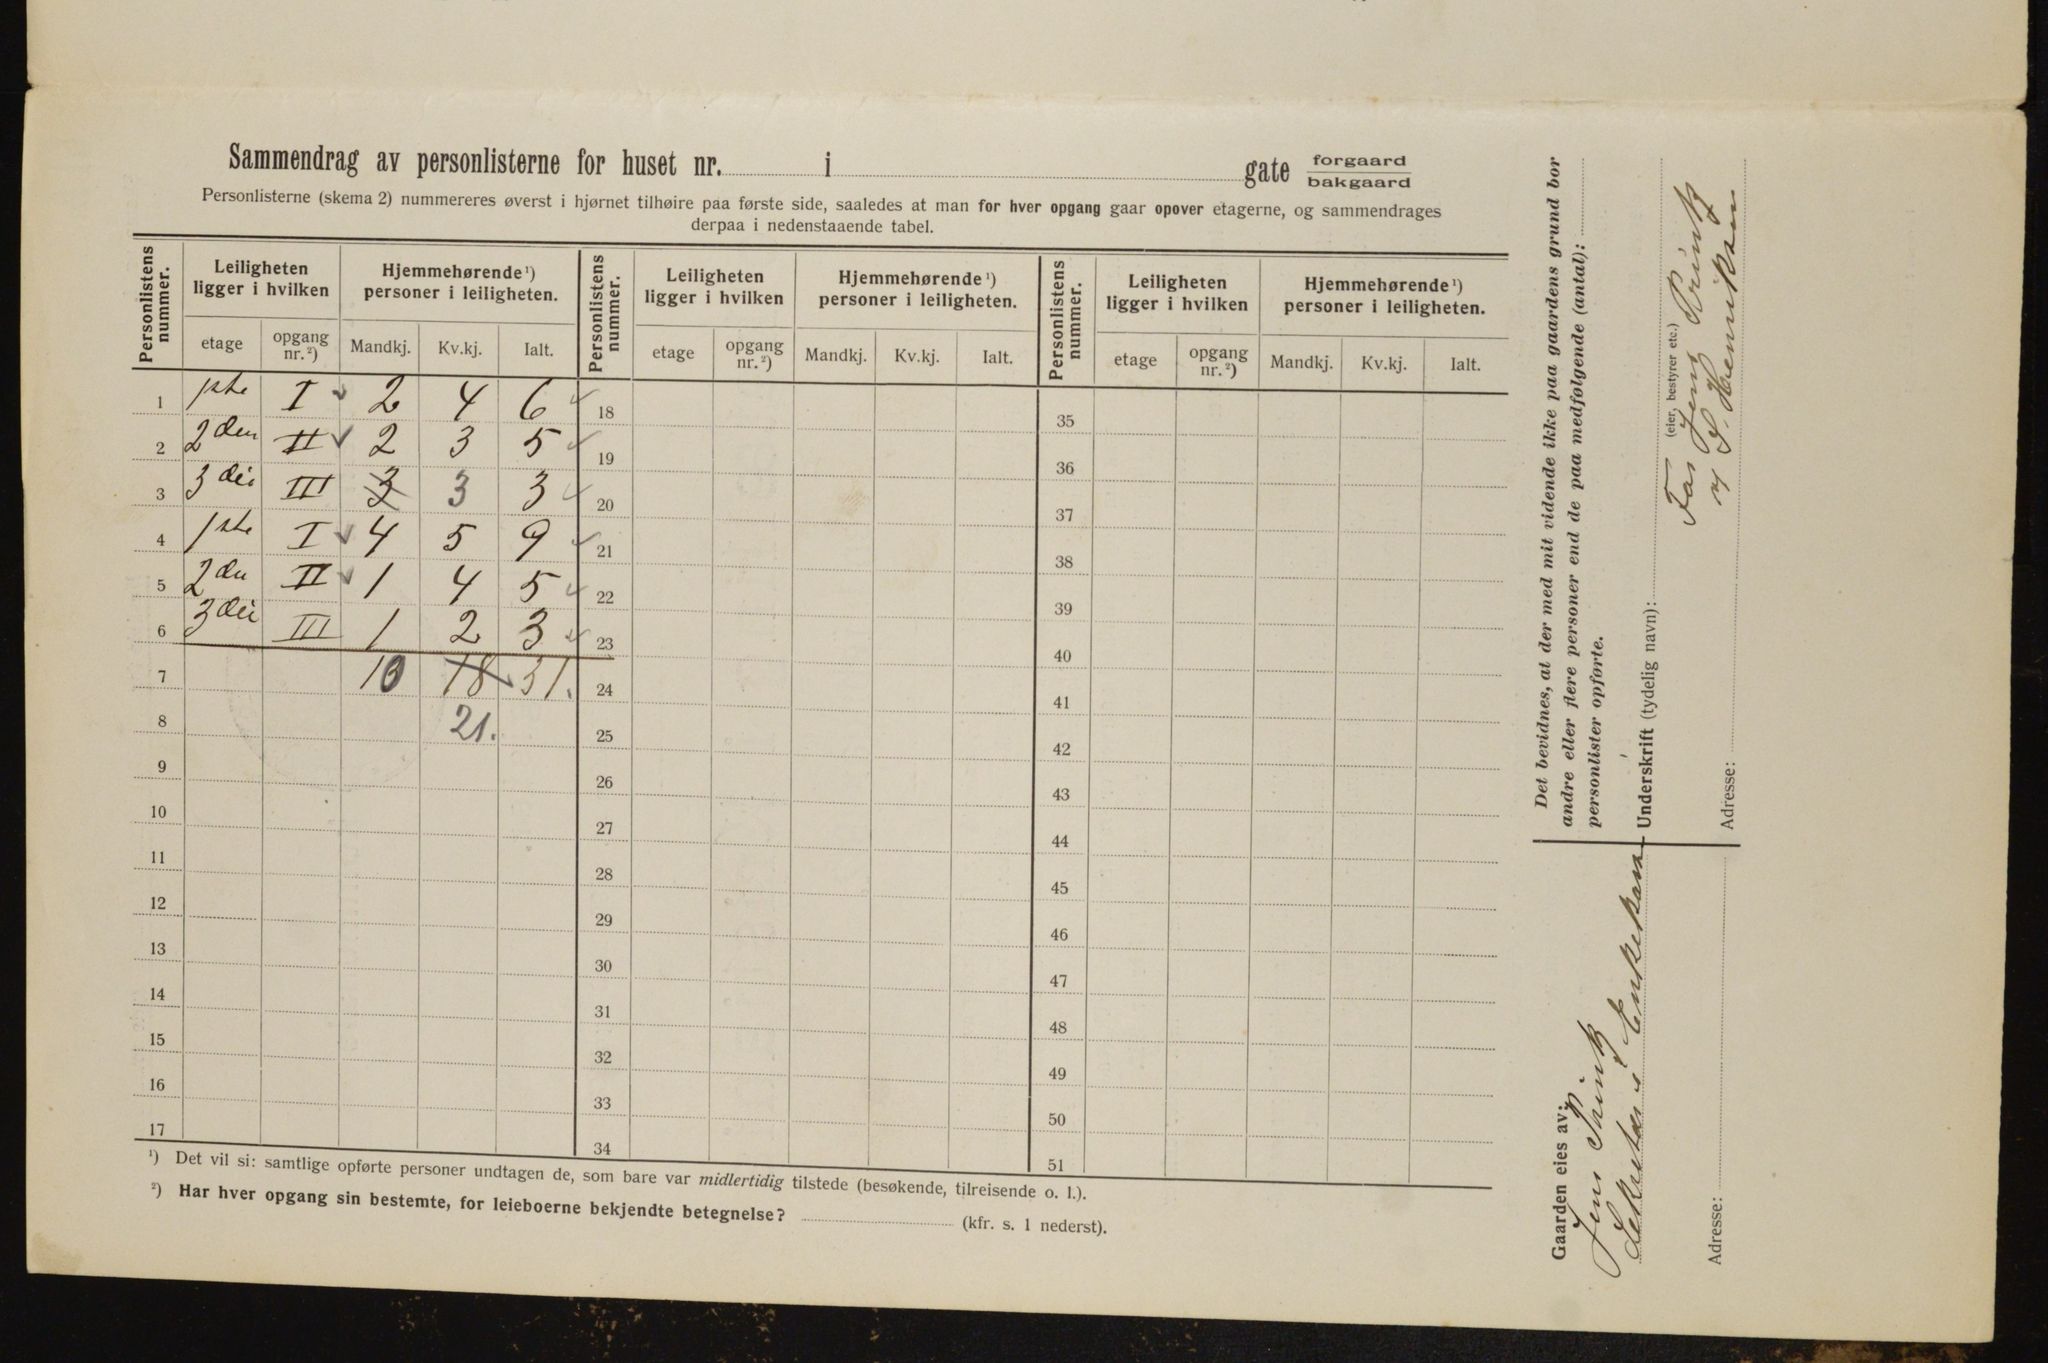 Sammendrag av personlisterne for huset nr. i gate forgaard
bakgaard
Personlisterne (skema 2) nummereres øverst i hjørnet tilhøire paa første side, saaledes at man for hver opgang gaar opover etagerne, og sammendrages
derpaa i nedenstaaende tabel.
Personlistens nummer. Leiligheten ligger i hvilken Hjemmehørende ¹) personer i leiligheten. Personlistens nummer. Leiligheten ligger i hvilken Hjemmehørende ¹) personer i leiligheten. Personlistens nummer. Leiligheten ligger i hvilken Hjemmehørende ¹) personer i leiligheten.
etage opgang nr. ²) Mandkj. Kv.kj. Ialt. etage opgang nr. ²) Mandkj. Kv.kj. Ialt. etage opgang nr. ²) Mandkj. Kv.kj. Ialt.
1 1ste I 2 4 6 18 35
2 2den II 2 3 5 19 36
3 3die III 3 3 3 20 37
4 1ste I 4 5 9 21 38
5 2den II 1 4 5 22 39
6 3die III 1 2 3 23 40
7 10 18 31. 24 41
8 21. 25 42
9 26 43
10 27 44
11 28 45
12 29 46
13 30 47
14 31 48
15 32 49
16 33 50
17 34 51
¹) Det vil si: samtlige opførte personer undtagen de, som bare var midlertidig tilstede (besøkende, tilreisende o. l.).
²) Har hver opgang sin bestemte, for leieboerne bekjendte betegnelse? (kfr. s. 1 nederst).
Det bevidnes, at der med mit vidende ikke paa gaardens grund bor
andre eller flere personer end de paa medfølgende (antal):
personlister opførte.
Underskrift (tydelig navn):
(eier, bestyrer etc.)
For Jens
Henriksen
Adresse:
Gaarden eies av:
Jens
Sekretær i Enkekassen
Adresse: